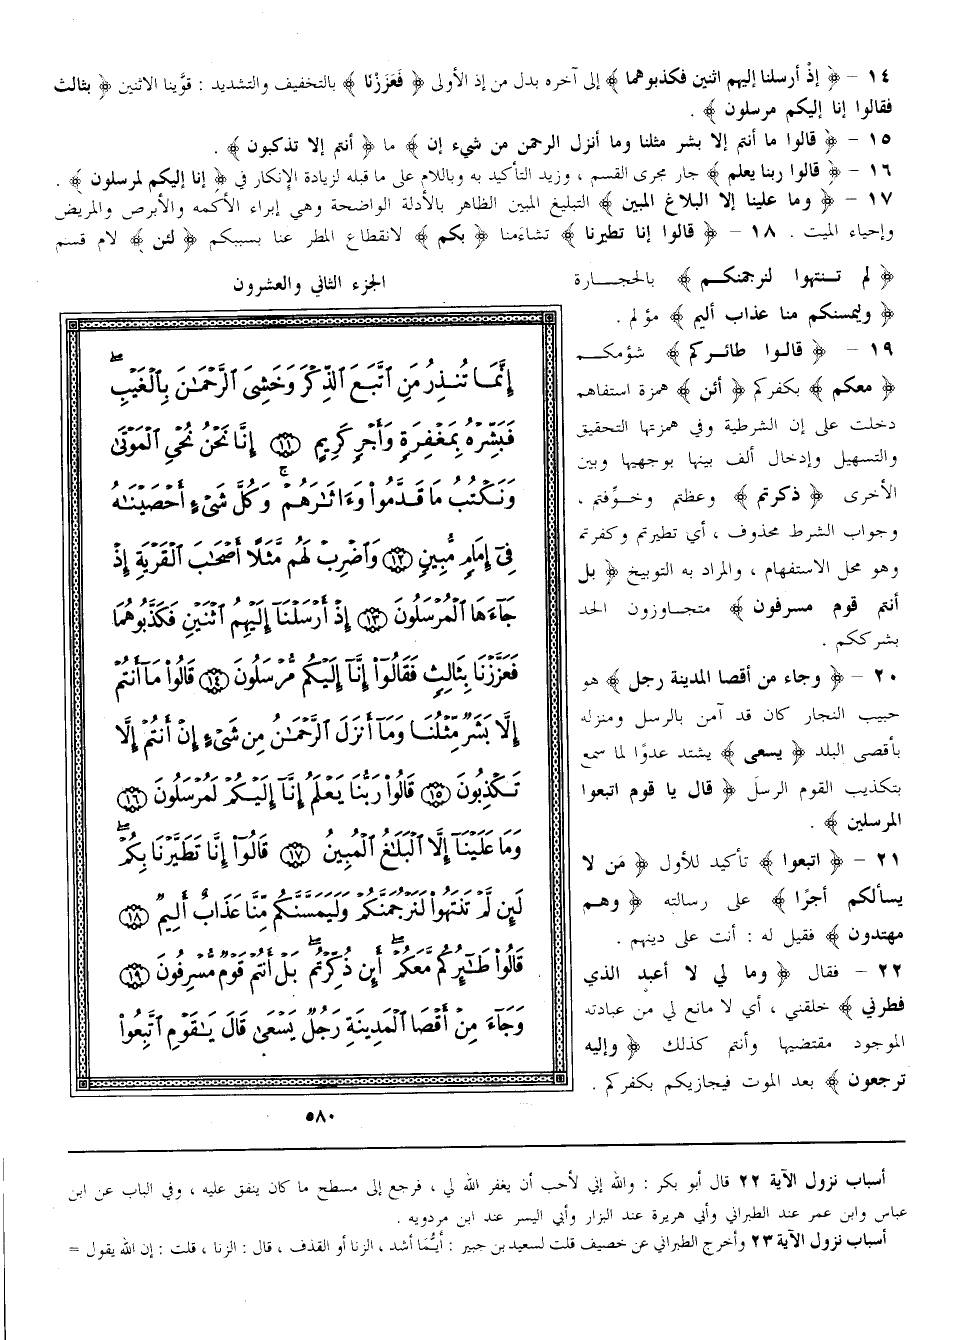 ١٤ – ﴿ إذْ أرسلنا إليهم اثنين فكذبوهما ﴾ إلى آخره بدل من إذ الأولى ﴿ فَعَزَزْنَا ﴾ بالتخفيف والتشديد : قوَّينا الاثنين ﴿ بثالث
فقالوا إنا إليكم مرسلون ﴾ .
١٥ – ﴿ قالوا ما أنتم إلا بشر مثلنا وما أنزل الرحمن من شيء إن ﴾ ما ﴿ أنتم إلا تذكبون ﴾ .
١٦ – ﴿ قالوا ربنا يعلم ﴾ جار مجرى القسم ، وزيد التأكيد به وباللام على ما قبله لزيادة الإنكار في ﴿ إنا إليكم لمرسلون ﴾ .
١٧ – ﴿ وما علينا إلا البلاغ المبين ﴾ التبليغ المبين الظاهر بالأدلة الواضحة وهي إبراء الأكمه والأبرص والمريض
وإحياء الميت . ١٨ – ﴿ قالوا إنا تطيرنا ﴾ تشاءمنا ﴿ بكم ﴾ لانقطاع المطر عنا بسببكم ﴿ لئن ﴾ لام قسم
﴿ لم تنتهوا لنرجمنكم ﴾ بالحجارة
﴿ وليمسنكم منا عذاب أليم ﴾ مؤلم .
١٩ – ﴿ قالوا طائركم ﴾ شؤمكم
﴿ معكم ﴾ بكفركم ﴿ أئن ﴾ همزة استفهام
دخلت على إن الشرطية وفي همزتها التحقيق
والتسهيل وإدخال ألف بينها بوجهيها وبين
الأخرى ﴿ ذكرتم ﴾ وعظتم وخوِّفتم ،
وجواب الشرط محذوف ، أي تطيرتم وكفرتم
وهو محل الاستفهام ، والمراد به التوبيخ ﴿ بل
أنتم قوم مسرفون ﴾ متجاوزون الحد
بشرككم .
٢٠ – ﴿ وجاء من أقصا المدينة رجل ﴾ هو
حبيب النجار كان قد آمن بالرسل ومنزله
بأقصى البلد ﴿ يسعى ﴾ يشتد عدوًا لما سمع
بتكذيب القوم الرسلَ ﴿ قال يا قوم اتبعوا
المرسلين ﴾ .
٢١ – ﴿ اتبعوا ﴾ تأكيد للأول ﴿ مَن لا
يسألكم أجرًا ﴾ على رسالته ﴿ وهم
مهتدون ﴾ فقيل له : أنت على دينهم .
٢٢ – فقال ﴿ وما لي لا أعبد الذي
فطرني ﴾ خلقني ، أي لا مانع لي من عبادته
الموجود مقتضيها وأنتم كذلك ﴿ وإليه
ترجعون ﴾ بعد الموت فيجازيكم بكفركم .
الجزء الثاني والعشرون
إِنَّمَا تُنذِرُ مَنِ ٱتَّبَعَ ٱلذِّكْرَ وَخَشِىَ ٱلرَّحْمَـٰنَ بِٱلْغَيْبِۖ
فَبَشِّرْهُ بِمَغْفِرَةٍ وَأَجْرٍ كَرِيمٍ ۝١١ إِنَّا نَحْنُ نُحْىِ ٱلْمَوْتَىٰ
وَنَكْتُبُ مَا قَدَّمُواْ وَءَاثَـٰرَهُمْۚ وَكُلَّ شَىْءٍ أَحْصَيْنَـٰهُ
فِىٓ إِمَامٍ مُّبِينٍ ۝١٢ وَٱضْرِبْ لَهُم مَّثَلًا أَصْحَـٰبَ ٱلْقَرْيَةِ إِذْ
جَآءَهَا ٱلْمُرْسَلُونَ ۝١٣ إِذْ أَرْسَلْنَآ إِلَيْهِمُ ٱثْنَيْنِ فَكَذَّبُوهُمَا
فَعَزَّزْنَا بِثَالِثٍ فَقَالُوٓاْ إِنَّآ إِلَيْكُم مُّرْسَلُونَ ۝١٤ قَالُواْ مَآ أَنتُمْ
إِلَّا بَشَرٌ مِّثْلُنَا وَمَآ أَنزَلَ ٱلرَّحْمَـٰنُ مِن شَىْءٍ إِنْ أَنتُمْ إِلَّا
تَكْذِبُونَ ۝١٥ قَالُواْ رَبُّنَا يَعْلَمُ إِنَّآ إِلَيْكُمْ لَمُرْسَلُونَ ۝١٦
وَمَا عَلَيْنَآ إِلَّا ٱلْبَلَـٰغُ ٱلْمُبِينُ ۝١٧ قَالُوٓاْ إِنَّا تَطَيَّرْنَا بِكُمْۖ
لَئِن لَّمْ تَنتَهُواْ لَنَرْجُمَنَّكُمْ وَلَيَمَسَّنَّكُم مِّنَّا عَذَابٌ أَلِيمٌ ۝١٨
قَالُواْ طَـٰٓئِرُكُم مَّعَكُمْۖ أَئِن ذُكِّرْتُمۖ بَلْ أَنتُمْ قَوْمٌ مُّسْرِفُونَ ۝١٩
وَجَآءَ مِنْ أَقْصَا ٱلْمَدِينَةِ رَجُلٌ يَسْعَىٰ قَالَ يَـٰقَوْمِ ٱتَّبِعُواْ
٥٨٠
أسباب نزول الآية ٢٢ قال أبو بكر : والله إني لأحب أن يغفر الله لي ، فرجع إلى مسطح ما كان ينفق عليه ، وفي الباب عن ابن
عباس وابن عمر عند الطبراني وأبي هريرة عند البزار وأبي اليسر عند ابن مردويه .
أسباب نزول الآية ٢٣ وأخرج الطبراني عن خصيف قلت لسعيد بن جبير : أيُّما أشد ، الزنا أو القذف ، قال : الزنا ، قلت : إن الله يقول =